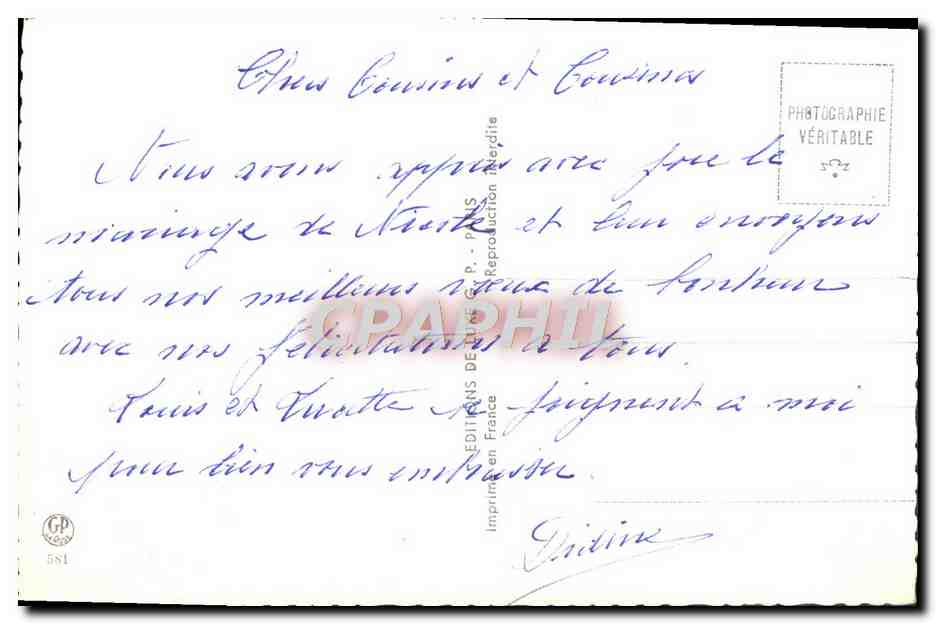 Chers Cousins et Cousines
PHOTOGRAPHIE
VÉRITABLE
Nous avons appris avec joie le
mariage de et leur envoyons
tous nos meilleurs vœux de bonheur
avec nos félicitations à tous.
Louis et se joignent a moi
pour bien vous embrasser.
Didine
EDITIONS DE LUXE G. P. - PARIS
Imprimé en France Reproduction interdite
CPAPHIL
GP
581